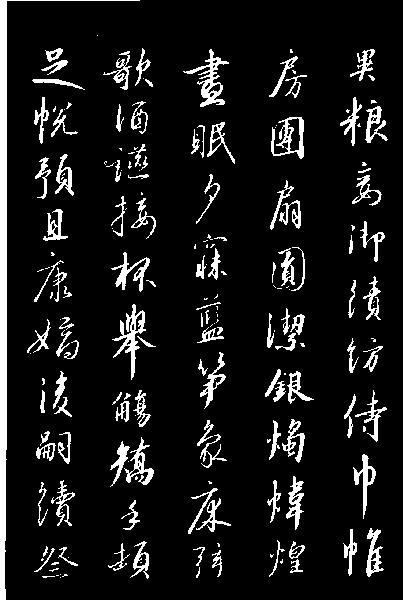 異糧妾御績紡侍巾帷
房團扇圓潔銀燭煒煌
晝眠夕寐藍笋象床弦
歌酒讌接杯舉觴矯手頓
足悅豫且康嫡後嗣續祭